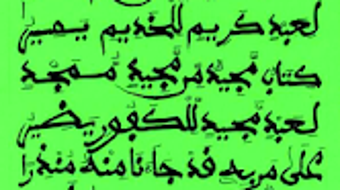 لعبد كريم للخديم يميز
كتاب مجيد من مجيد ممجد
لعبد مجيد للكفور يضير
على مربه قد جاءنا منه منذرا